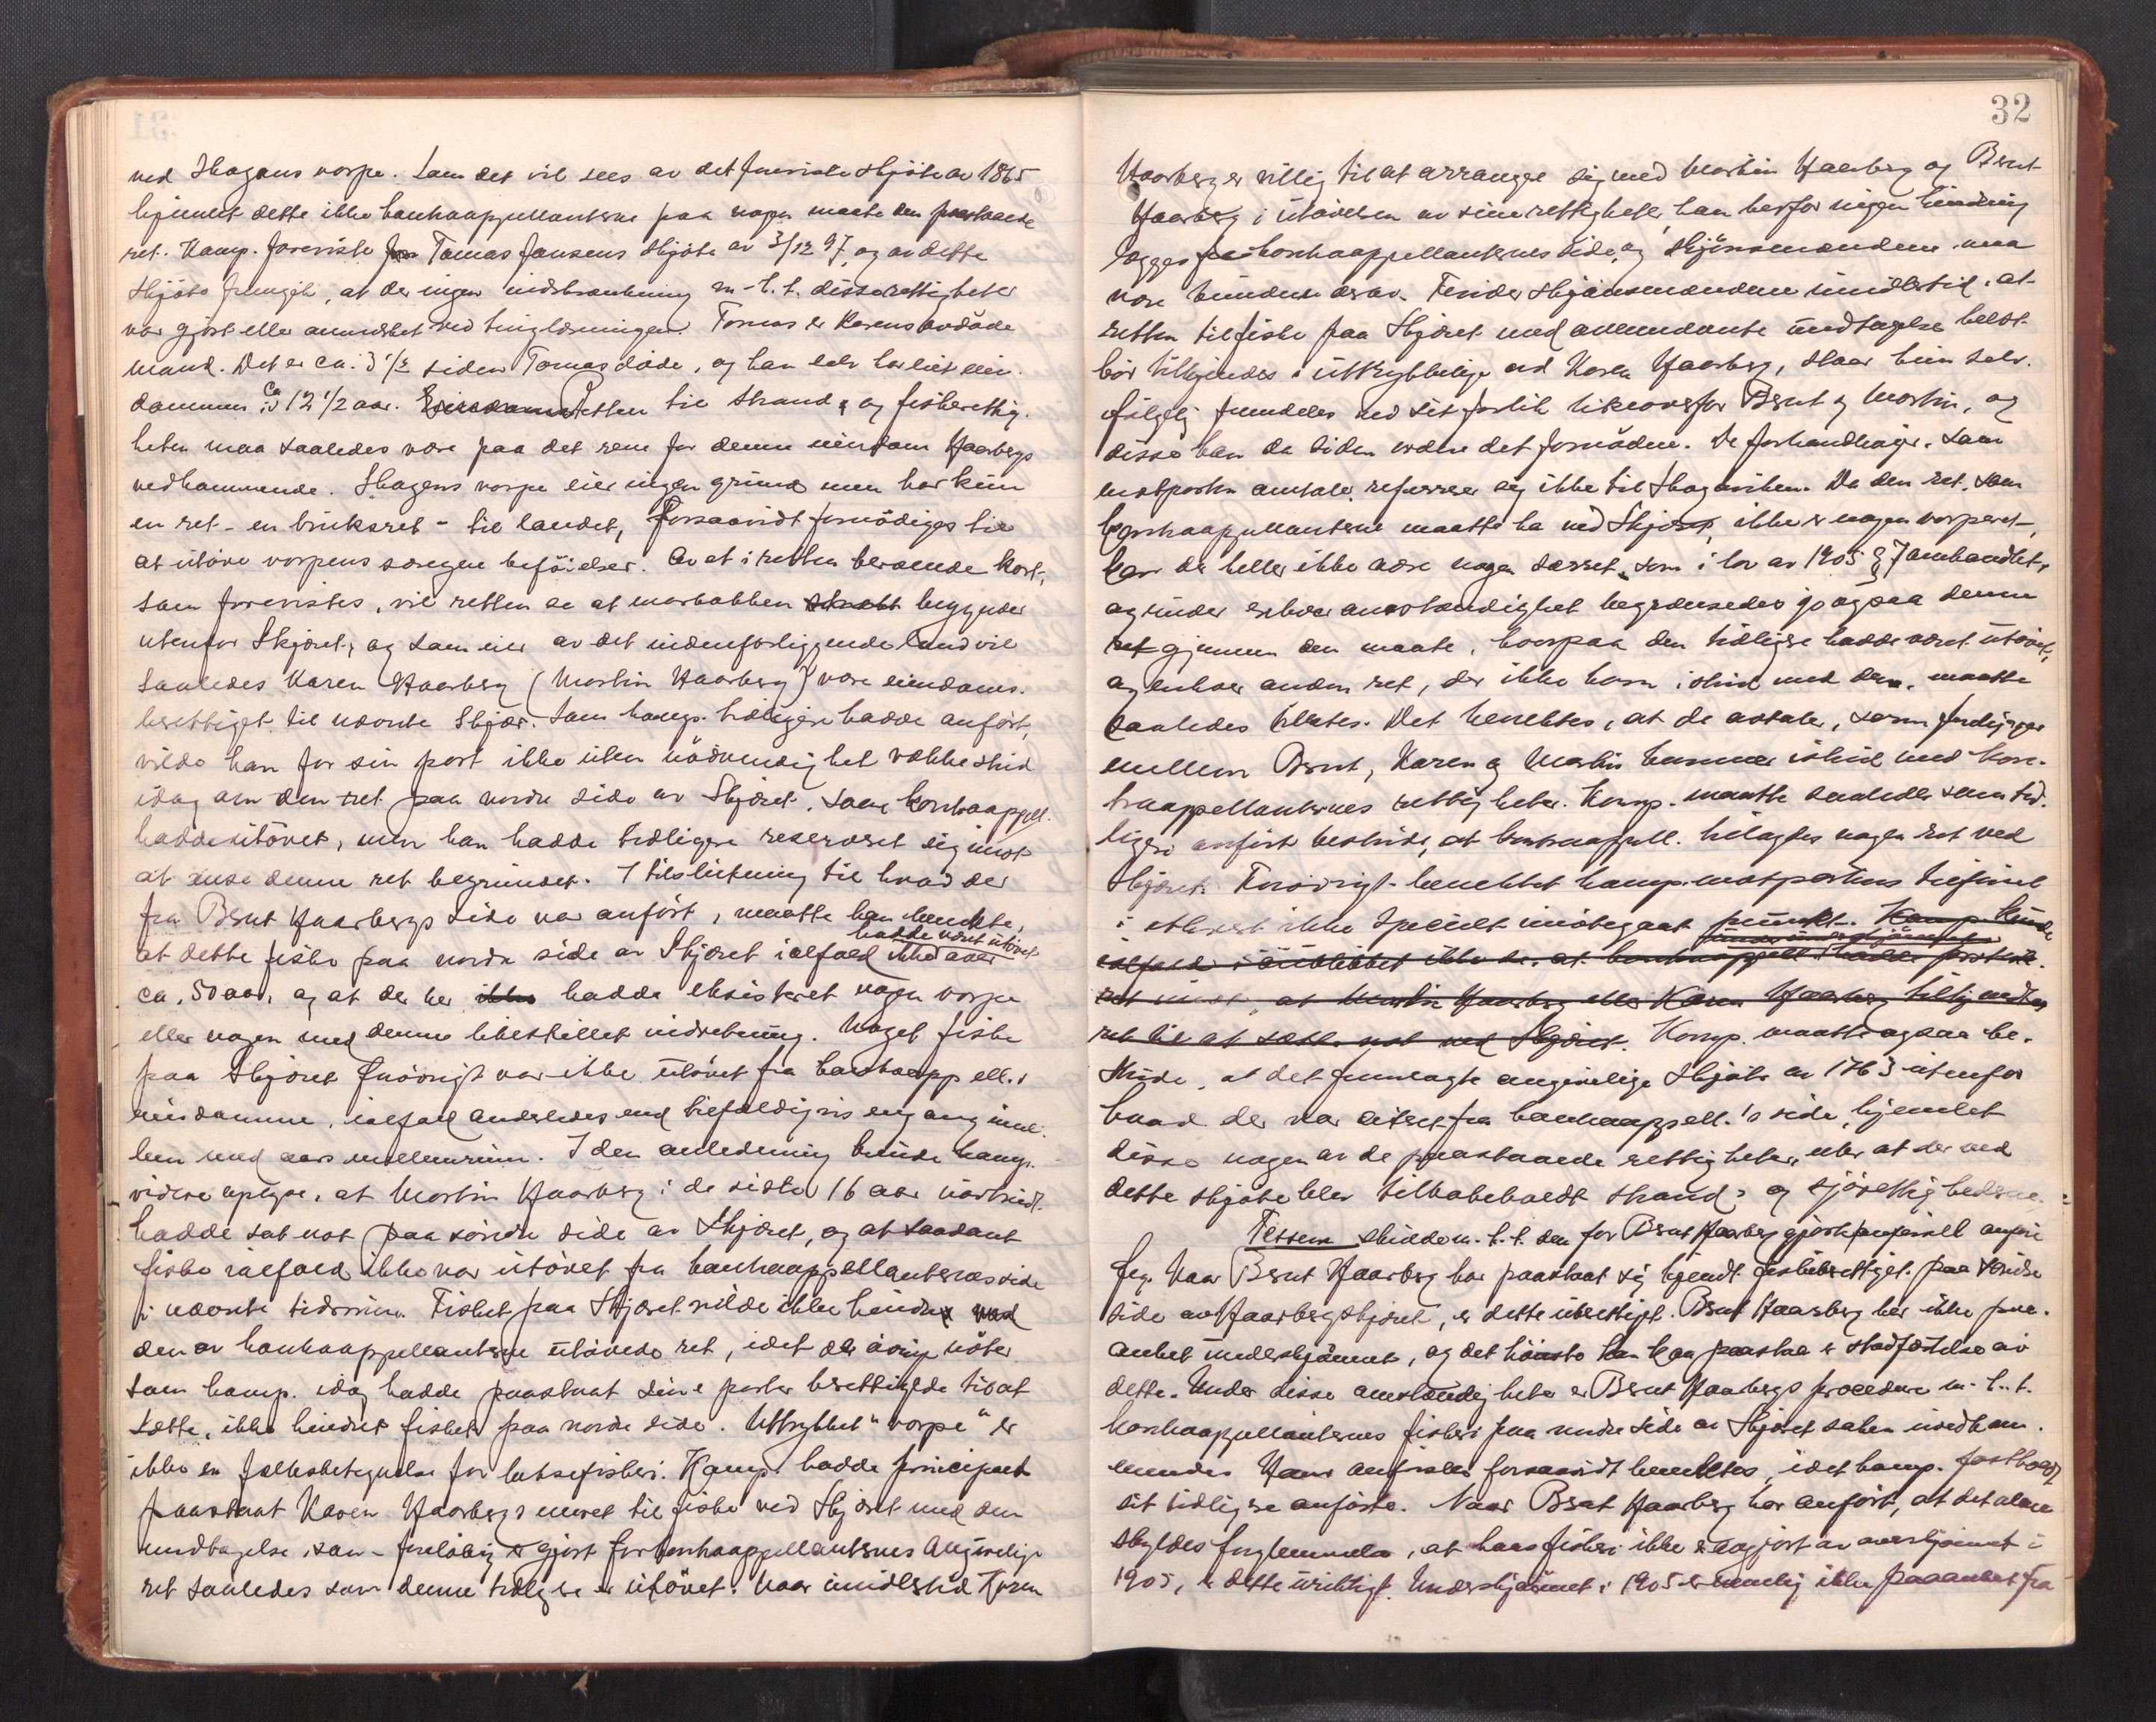 ved Skagens vorpe. Som det vil sees av det foreviste Skjöte av 1865
hjemlet dette ikke kontraappellanterne paa nogen maate den paastaaede
ret. Komp. foreviste Tomas Jansens Skjöte av 3/12 97, og av dette
Skjöte fremgik, at der ingen indskrænkning m-h.t. disse rettigheter
var gjort eller anmerket ved tinglæsningen. Tomas er Karens avdöde
mand. Det er ca. 3 1/2 siden Tomas döde, og han selv har eiet eien-
dommen i Ca 12 1/2 aar. Retten til Strand- og fiskerettig-
heten maa saaledes være paa det rene for denne eiendom Haarbergs
vedkommende. Skagens vorpe eier ingen grund men har kun
en ret - en bruksret - til landet, forsaavidt fornödiges til
at utöve vorpens særegne beföielser. Av et i retten beroende kart,
som forevistes, vil retten se at marbakken begynder
utenfor Skjæret, og som eier av det indenforliggende land vil
saaledes Karen Haarberg (Martin Haarberg) være eiendoms-
berettiget til nævnte Skjær. Som komp. tidligere hadde anfört,
vilde han for sin part ikke uten nödvendighet vække strid
idag om den ret paa nordre side av Skjæret, som kontraappell.
hadde utövet, men han hadde tidligere reserveret sig imot
at anse denne ret begrundet. I tilslutning til hvad der
fra Bernt Haarbergs side var anfört, maatte han benekte,
at dette fiske paa nordre side av Skjæret ialfald hadde været utövet ikke over
ca. 50 aar, og at der her hadde eksisteret nogen vorpe
eller nogen med denne likestillet indretning. Noget fiske
paa Skjæret forövrigt var ikke utövet fra kontraappell.s
eiendomme, ialfald anderledes end tilfældigvis engang imel-
lem med aars mellemrum. I den anledning kunde komp.
videre oplyse, at Martin Haarberg i de sidste 16 aar uavbrudt
hadde sat not paa söndre side av Skjæret, og at saadant
fiske ialfald ikke var utövet fra kontraappellanternes side
i nævnte tidsrum. Fisket paa Skjæret vilde ikke hindre
den av kontraappellanterne utövede ret, idet de övrige nöter
som komp. idag hadde paastaat sine parter berettigede til at
sætte, ikke hindret fisket paa nordre side. Uttrykket "vorpe" er
ikke en fællesbetegnelse for laksefiskeri. Komp. hadde principalt
paastaat Karen Haarbergs eneret til fiske ved Skjæret med den
undtagelse, som - forelöbig er gjort for kontraappellanternes angivelige
ret saaledes som denne tidligere er utövet. Naar imidlertid Karen
32
Haarberg er villig til at arrangere sig med Martin Haarberg og Bernt
Haarberg i utövelsen av sine rettigheter, kan herfor ingen hindring
lægges fra kontraappellanternes side, og skjönsmændene maa
være bundne derav. Finder skjönsmændene imidlertid, at
retten til fiske paa Skjæret med ovennævnte undtagelse helst
bör tilkjendes i uttrykkelige ord Karen Haarberg, staar hun selv-
fölgelig fremdeles ved sit forlik likeoverfor Bernt og Martin, og
disse kan da siden ordne det fornödne. De forhandlinger, som
motparten omtale, refererer sig ikke til Skagviken. Da den ret, som
kontraappellanterne maatte ha ved Skjæret, ikke er nogen vorperet,
kan der heller ikke være nogen særret, som i lov av 1905 § 7 omhandlet,
og under enhver omstændighet begrænsedes jo ogsaa denne
ret gjennem den maate, hvorpaa den tidligere hadde været utövet,
og enhver anden ret, der ikke kom i strid med den, maatte
saaledes tillates. Det benektes, at de avtaler, som foreligger
mellem Bernt, Karen og Martin kommer i strid med kon-
traappellanternes rettigheter. Komp. maatte saaledes som tid-
ligere anfört bestride, at kontraappell. tilagdes nogen ret ved
Skjæret. Forövrigt benektet komp. motpartens tilförsel
i ethvert ikke specielt imötegaat punkt. Komp. kunde
ialfald i öieblikket ikke se, at kontraappell. under underskjönnet hadde protest-
ert imot, at Martin Haarberg eller Karen Haarberg tilkjendtes
ret til at sætte not ved Skjæret. Komp. maatte ogsaa be-
stride, at det fremlagte angivelige Skjöte av 1763 utenfor
hvad der var citert fra kontraappell.'s side, hjemlet
disse nogen av de paastaaede rettigheter, eller at der ved
dette skjöte blev tilbakeholdt strand- og sjörettighederne.
Tessem skulde m.h.t. den for Bernt Haarberg gjorte anförsel anföre
flg. Naar Bernt Haarberg har paastaat sig kjendt fiskeberettiget paa söndre
side av Haarbergskjæret, er dette uberettiget. Bernt Haarberg har ikke paa-
anket underskjönnet, og det höieste han kan paastaa er stadfæstelse av
dette. Under disse omstændigheter er Bernt Haarbergs procedure m.h.t.
kontraappellanternes fiskeri paa nordre side av Skjæret saken uvedkom-
mende. Hans anförsler forsaavidt benektes, idet komp. fastholdt
sit tidligere anförte. Naar Bernt Haarberg har anfört, at det alene
skyldes forglemmelse, at hans fiskeri ikke er avgjort av overskjönnet i
1905, er dette uriktigt. Underskjönnet i 1905 er nemlig ikke paaanket fra